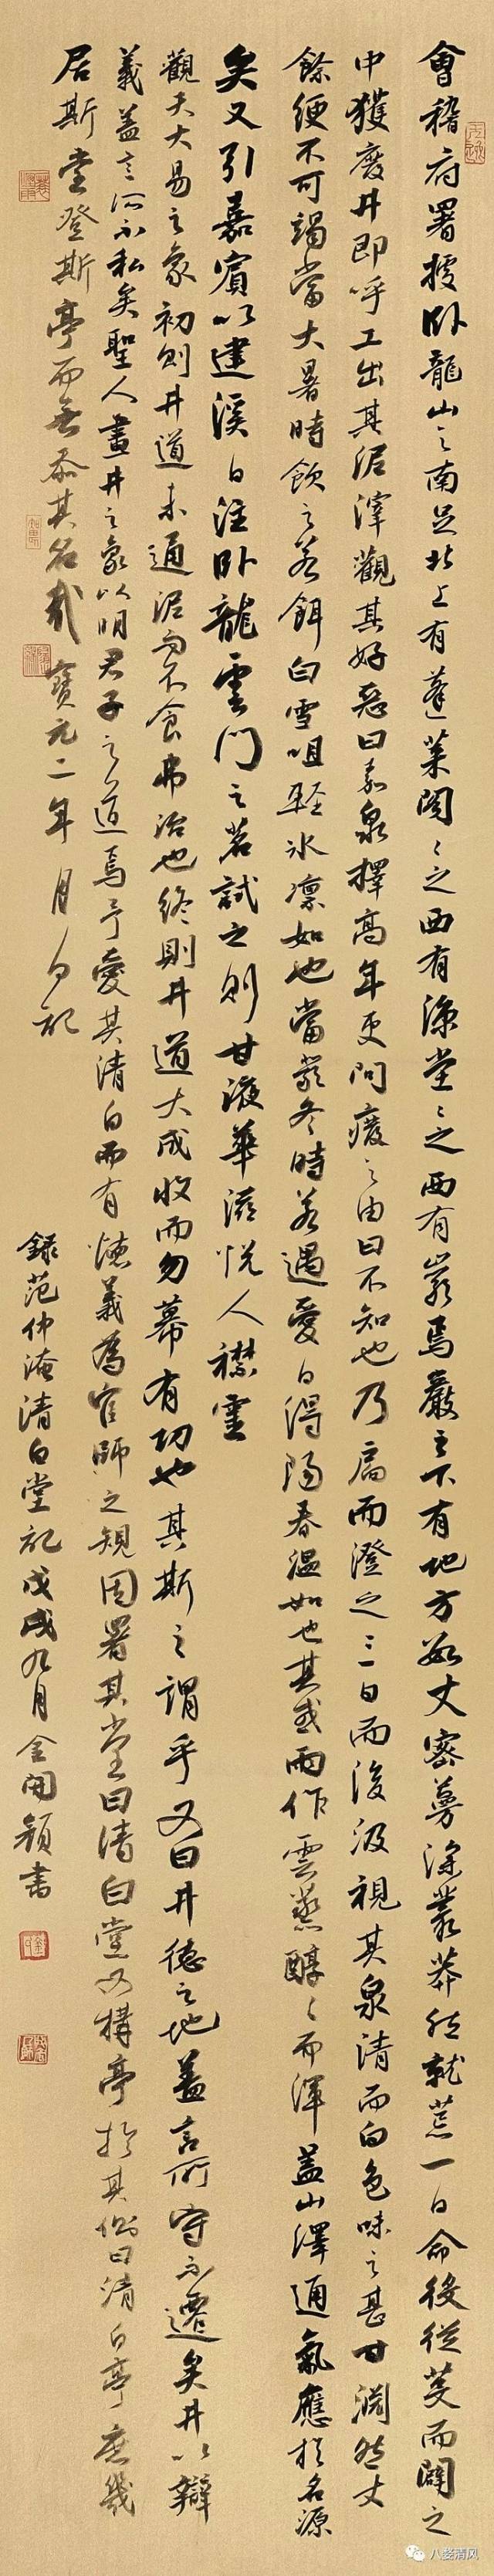 會稽府署據卧龍山之南足北上有蓬萊閣〻之西有涼堂〻之西有巖焉巖之下有地方数丈密蔓深叢莽然就荒一日命役徒芟而闢之
中獲廢井即呼工出其泥滓觀其好惡曰嘉泉擇高年吏問廢之由曰不知也乃扃而澄之三日而後汲視其泉清而白色味之甚甘淵然丈
餘綆不可竭當大暑時飲之若餌白雪咀輕冰凛如也當嚴冬時若遇愛日得陽春温如也其或雨作雲蒸醇〻而渾盖山澤通氣應於名源
矣又引嘉賓以建溪日注卧龍雲門之茗試之則甘液華滋悦人襟靈
觀夫大易之象初則井道未通泥而不食弗治也終則井道大成收而勿幕有功也其斯之謂乎又曰井德之地蓋言所守不遷矣井以辯
義盖言所不私矣聖人畫井之象以明君子之道焉予愛其清白而有德義為官師之規因署其堂曰清白堂又構亭於其側曰清白亭庶幾
居斯堂登斯亭而無忝其名哉寶元二年月日記
錄范仲淹清白堂記戊戌九月金書
八婺清风